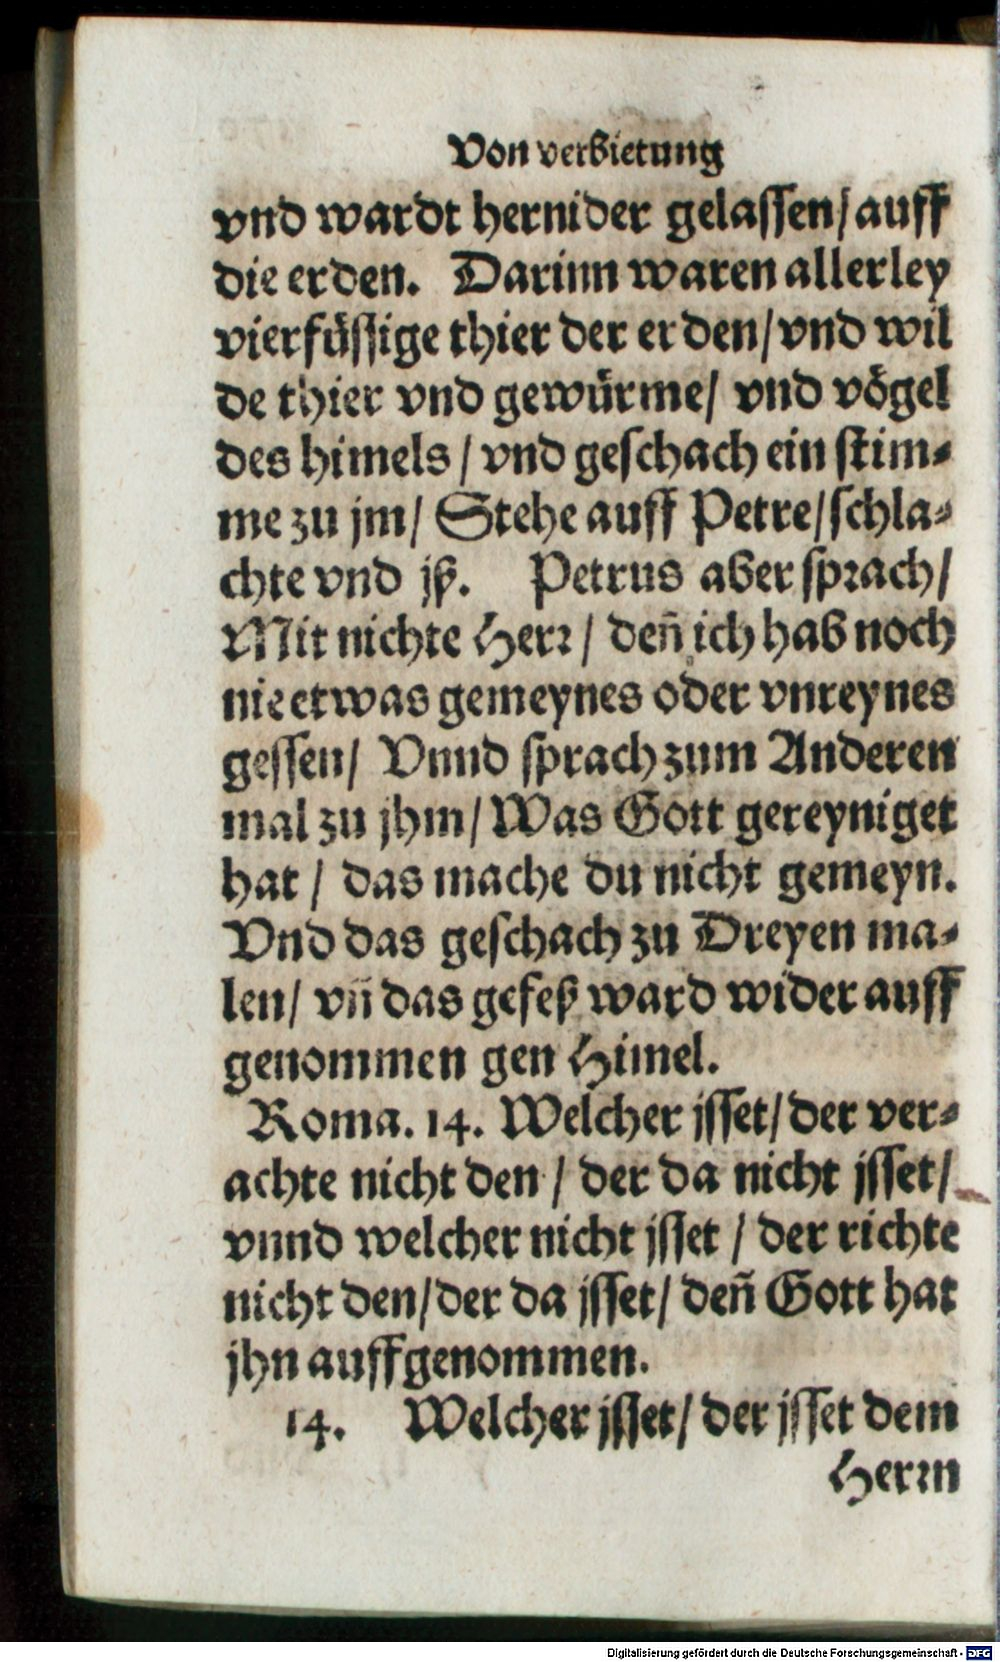 Von verbietung
vnd wardt hernider gelassen/ auff
die erden. Darinn waren allerley
vierfüssige thier der erden/ vnd wil
de thier vnd gewürme/ vnd vögel
des himels / vnd geschach ein stim-
me zu jm/ Stehe auff Petre/ schla-
chte vnd jß. Petrus aber sprach/
Mit nichte Herr / deñ ich hab noch
nie etwas gemeynes oder vnreynes
gessen/ Vnnd sprach zum Anderen
mal zu jhm/ Was Gott gereyniget
hat / das mache du nicht gemeyn.
Vnd das geschach zu Dreyen ma-
len/ vñ das gefeß ward wider auff
genommen gen Himel.
Roma. 14. Welcher jsset/ der ver-
achte nicht den / der da nicht jsset/
vnnd welcher nicht jsset / der richte
nicht den/ der da jsset/ deñ Gott hat
jhn auffgenommen.
14. Welcher jsset/ der jsset dem
Herrn
Digitalisierung gefördert durch die Deutsche Forschungsgemeinschaft - DFG